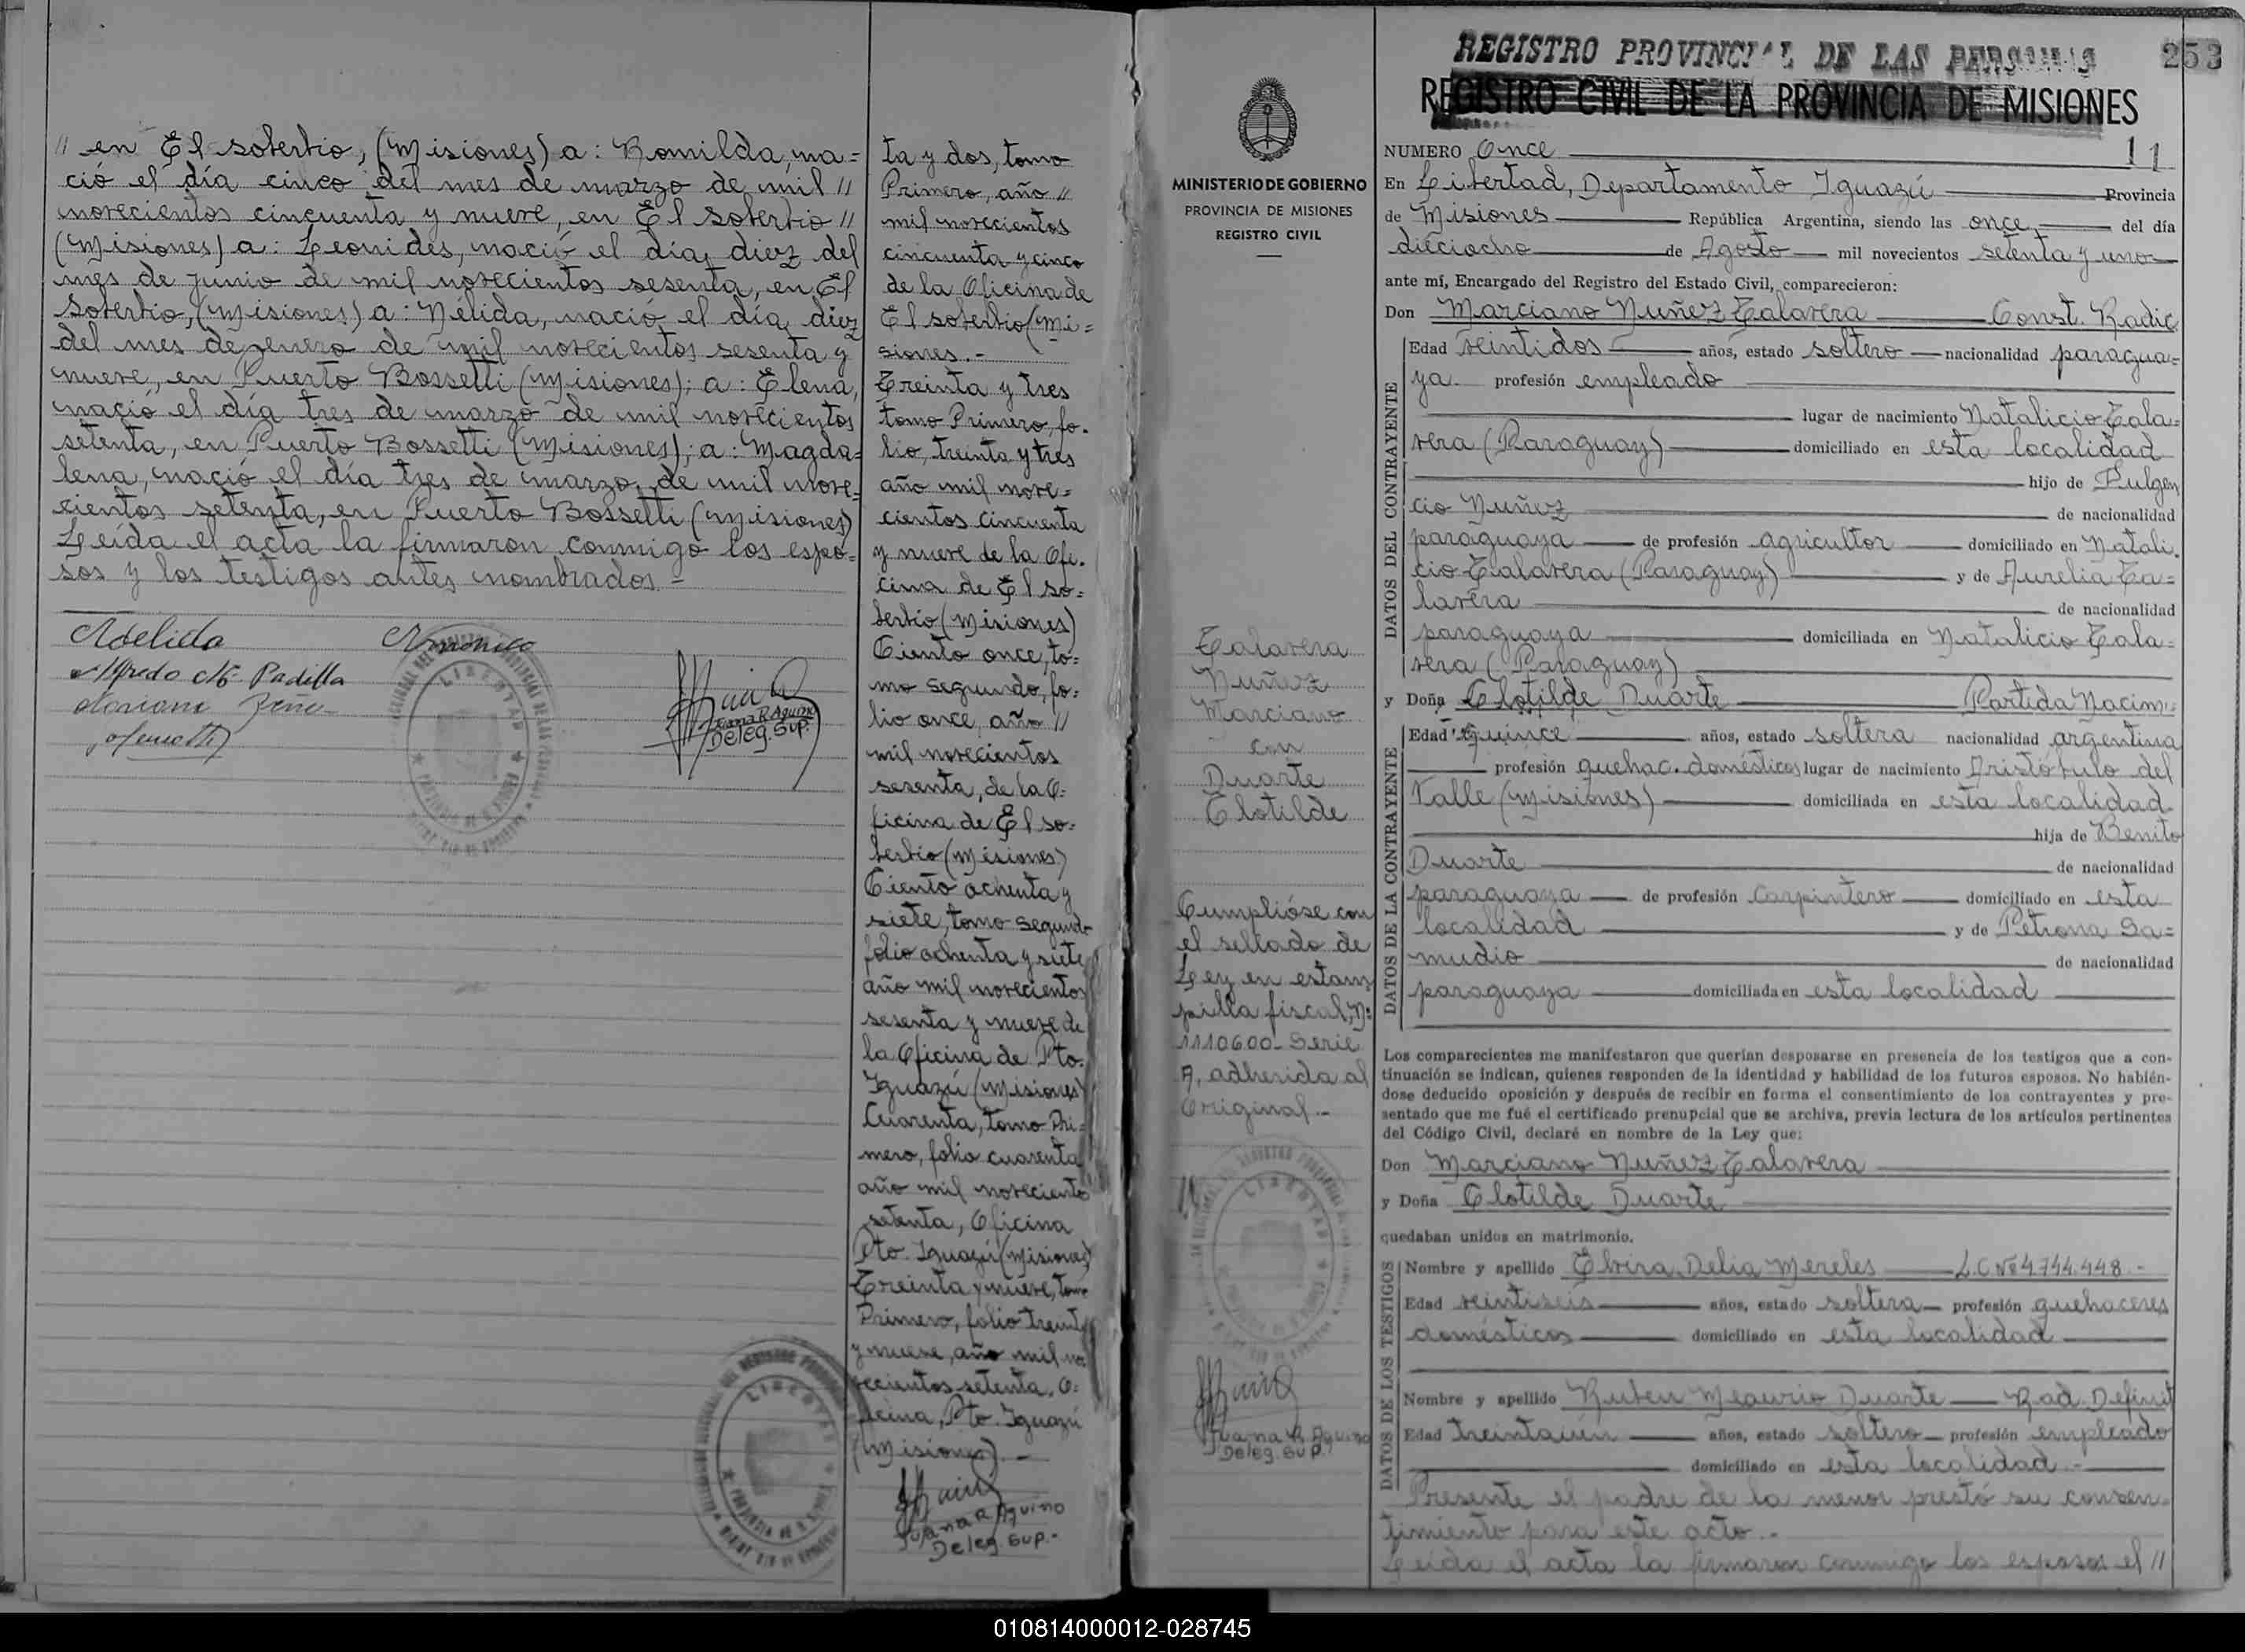 // en El soberbio, (Misiones) a: Romilda, na=
ció el día cinco del mes de marzo de mil //
novecientos cincuenta y nueve, en El soberbio //
(Misiones) a: Leonides, nació el día diez del
mes de junio de mil novecientos sesenta, en El
Soberbio, (Misiones) a: Nélida, nació el día diez
del mes de enero de mil novecientos sesenta y
nueve, en Puerto Bossetti (Misiones); a: Elena,
nació el día tres de marzo de mil novecientos
setenta, en Puerto Bossetti (Misiones); a: Magda=
lena, nació el día tres de marzo de mil nove=
cientos setenta, en Puerto Bossetti (Misiones)
Leída el acta la firmaron conmigo los espo=
sos y los testigos antes nombrados.-
Alfredo Padilla
Juana R Aquino
Deleg. Sup.
ta y dos, tomo
Primero, año //
mil novecientos
cincuenta y cinco
de la Oficina de
El soberbio (Mi=
siones.-
Treinta y tres
tomo Primero, fo.
lio, treinta y tres
año mil nove=
cientos cincuenta
y nueve de la Ofi.
cina de El so=
berbio (Misiones)
Ciento once, to=
mo segundo, fo=
lio once, año //
mil novecientos
sesenta, de la O=
ficina de El so=
berbio (Misiones)
Ciento ochenta y
siete, tomo segundo
folio ochenta y siete
año mil novecientos
sesenta y nueve de
la Oficina de Pto.
Iguazú (Misiones)
Cuarenta, tomo Pri=
mero, folio cuarenta
año mil noveciento
setenta, Oficina
Pto. Iguazú (Misiones)
Treinta y nueve, tomo
Primero, folio treinta
y nueve, año mil no
vecientos setenta, O=
ficina, Pto. Iguazú
(Misiones).-
Juana R Aquino
Deleg. Sup.-
MINISTERIO DE GOBIERNO
PROVINCIA DE MISIONES
REGISTRO CIVIL
Talavera
Nuñez
Marciano
con
Duarte
Clotilde
Cumplióse con
el sellado de
Ley en estam
pilla fiscal, Nº
1110600- Serie
A, adherida al
Original.-
Juana R Aquino
Deleg. Sup.
REGISTRO PROVINCIAL DE LAS PERSONAS 253
REGISTRO CIVIL DE LA PROVINCIA DE MISIONES
NUMERO Once 11
En Libertad, Departamento Iguazú Provincia
de Misiones República Argentina, siendo las once del día
dieciocho de Agosto mil novecientos setenta y uno
ante mí, Encargado del Registro del Estado Civil, comparecieron:
Don Marciano Nuñez Talavera Const. Radic.
DATOS DEL CONTRAYENTE
Edad veintidos años, estado soltero nacionalidad paragua=
ya. profesión empleado
lugar de nacimiento Natalicio Tala=
vera (Paraguay) domiciliado en esta localidad
hijo de Fulgen
cio Nuñez de nacionalidad
paraguaya de profesión agricultor domiciliado en Natali.
cio Talavera (Paraguay) y de Aurelia Ta=
lavera de nacionalidad
paraguaya domiciliada en Natalicio Tala=
vera (Paraguay)
y Doña Clotilde Duarte Partida Nacim.
DATOS DE LA CONTRAYENTE
Edad Quince años, estado soltera nacionalidad argentina
profesión quehac. domésticos lugar de nacimiento Aristóbulo del
Valle (Misiones) domiciliada en esta localidad
hija de Benito
Duarte de nacionalidad
paraguaya de profesión carpintero domiciliado en esta
localidad y de Petrona Sa=
mudio de nacionalidad
paraguaya domiciliada en esta localidad
Los comparecientes me manifestaron que querían desposarse en presencia de los testigos que a con-
tinuación se indican, quienes responden de la identidad y habilidad de los futuros esposos. No habién-
dose deducido oposición y después de recibir en forma el consentimiento de los contrayentes y pre-
sentado que me fué el certificado prenupcial que se archiva, previa lectura de los artículos pertinentes
del Código Civil, declaré en nombre de la Ley que:
Don Marciano Nuñez Talavera
y Doña Clotilde Duarte
quedaban unidos en matrimonio.
DATOS DE LOS TESTIGOS
Nombre y apellido Elvira Delia Mereles L.C Nº 4.744.448.-
Edad veintiseis años, estado soltera profesión quehaceres
domésticos domiciliado en esta localidad
Nombre y apellido Ruben Meaurio Duarte Rad. Definit
Edad treintaiun años, estado soltero profesión empleado
domiciliado en esta localidad.-
Presente el padre de la menor prestó su consen=
timiento para este acto.-
Leída el acta la firmaron conmigo los esposos el //
010814000012-028745